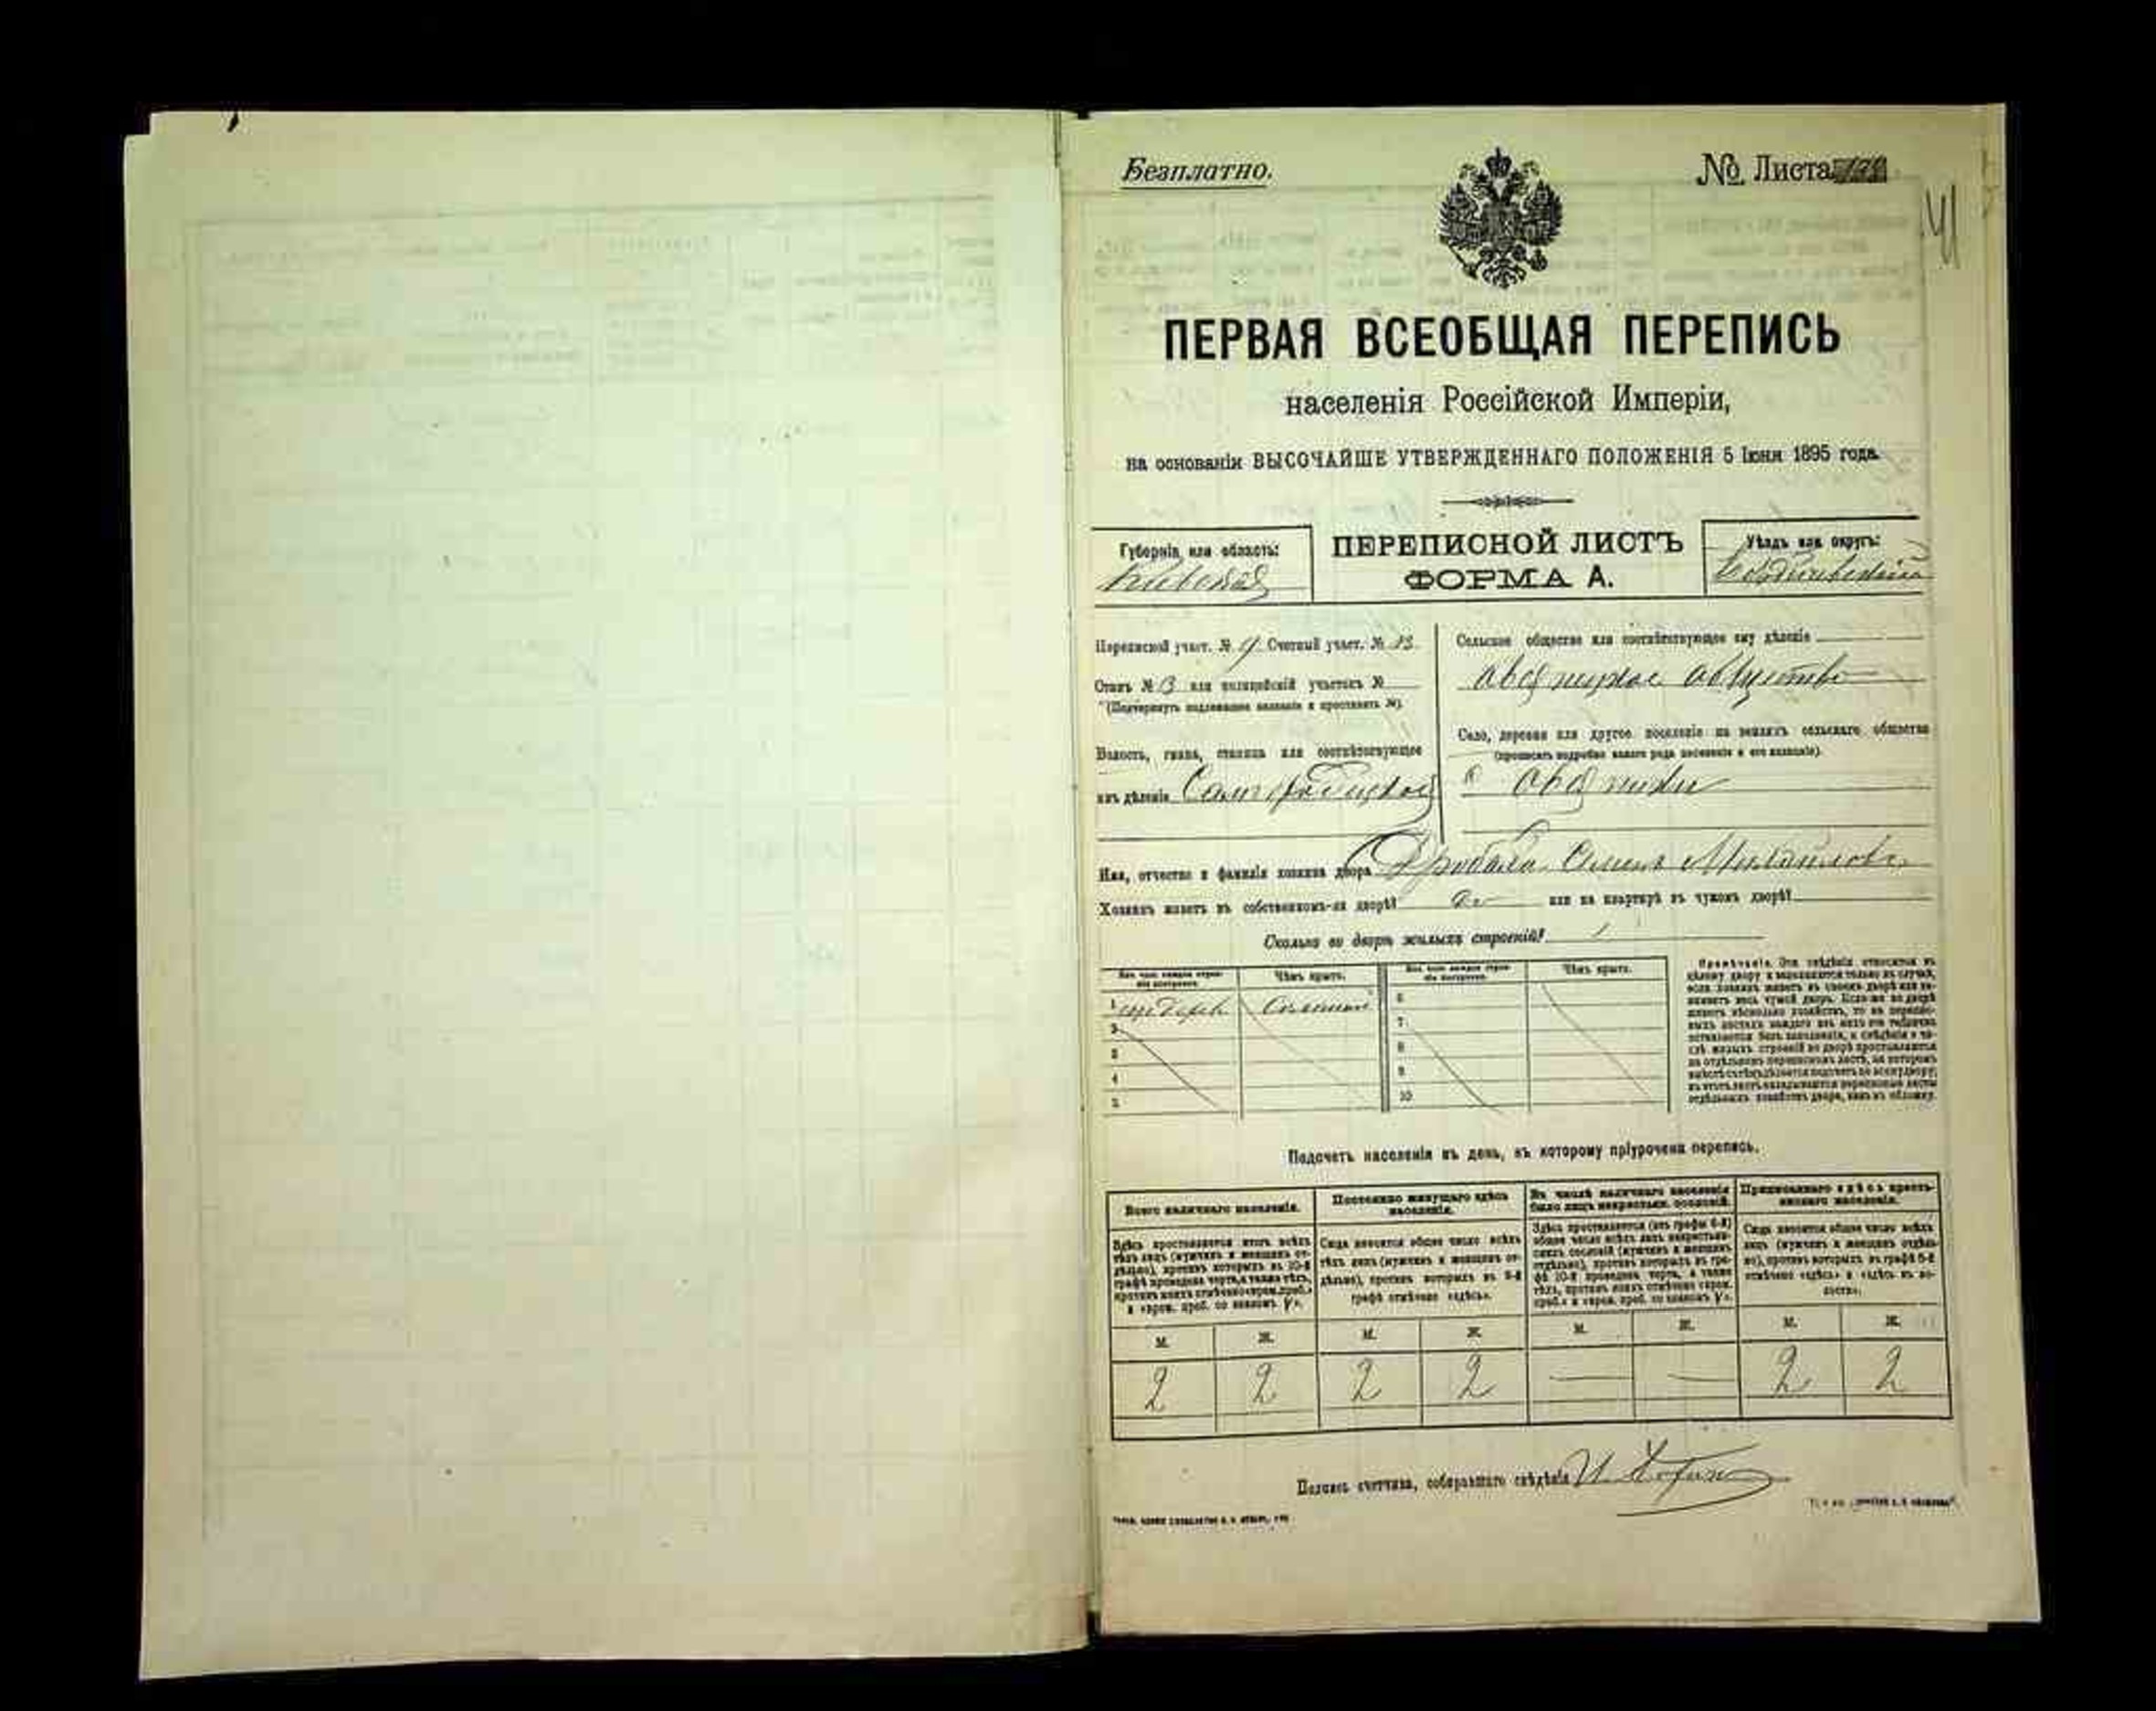 Безплатно.
№ Листа
41
ПЕРВАЯ ВСЕОБЩАЯ ПЕРЕПИСЬ
населенія Россійской Имперіи,
на основаніи ВЫСОЧАЙШЕ УТВЕРЖДЕННАГО ПОЛОЖЕНІЯ 5 Іюня 1895 года.
Губернія или область:
Кіевская
ПЕРЕПИСНОЙ ЛИСТЪ
ФОРМА А.
Уѣздъ или округъ:
Бердичевскій
Переписной участ. № Счетный участ. № 13
Станъ № 3 или полицейскій участокъ №
(Подчеркнуть подлежащее названіе и проставить №).
Волость, гмина, станица или соотвѣтствующее
имъ дѣленіе Самгородецкая
Сельское общество или соотвѣтствующее ему дѣленіе
Село, деревня или другое поселеніе на земляхъ сельскаго общества
(прописать подробно какого рода поселеніе и его названіе).
Имя, отчество и фамилія хозяина двора Михайловъ
Хозяинъ живетъ въ собственномъ-ли дворѣ? да или на квартирѣ въ чужомъ дворѣ?
Сколько во дворѣ жилыхъ строеній? 1
Изъ чего каждое строеніе построено.
Чѣмъ крыто.
Изъ чего каждое строеніе построено.
Чѣмъ крыто.
1 Соломой 6
2 7
3 8
4 9
5 10
Примѣчаніе. Эти свѣдѣнія относятся къ
цѣлому двору и заполняются только въ случаѣ,
если хозяинъ живетъ въ своемъ дворѣ или занимаетъ весь чужой дворъ. Если же во дворѣ
живетъ нѣсколько хозяйствъ, то на переписныхъ листахъ каждаго изъ нихъ эти таблички
оставляются безъ заполненія, а свѣдѣнія о числѣ жилыхъ строеній во дворѣ проставляются
на отдѣльномъ переписномъ листѣ, на которомъ
вмѣстѣ съ тѣмъ дѣлается подсчетъ по всему двору;
въ этотъ листъ вкладываются переписные листы
отдѣльныхъ хозяйствъ двора, какъ въ обложку.
Подсчетъ населенія въ день, къ которому пріурочена перепись.
Всего наличнаго населенія.
Постоянно живущаго здѣсь населенія.
Въ числѣ наличнаго населенія было лицъ некрестьян. сословій.
Приписаннаго здѣсь крестьянскаго населенія.
Здѣсь проставляется итогъ всѣхъ
тѣхъ лицъ (мужчинъ и женщинъ отдѣльно), противъ которыхъ въ 10-й
графѣ проведена черта, а также тѣхъ,
противъ коихъ отмѣчено «врем. преб.»
Сюда вносится общее число всѣхъ
тѣхъ лицъ (мужчинъ и женщинъ отдѣльно), противъ которыхъ въ 9-й
графѣ отмѣчено «здѣсь».
Здѣсь проставляется (изъ графы 6-й)
общее число всѣхъ лицъ некрестьянскихъ сословій (мужчинъ и женщинъ
отдѣльно), противъ которыхъ въ графѣ 10-й проведена черта, а также
тѣхъ, противъ коихъ отмѣчено «врем.
Сюда вносится общее число всѣхъ
лицъ (мужчинъ и женщинъ отдѣльно), противъ которыхъ въ графѣ 8-й
отмѣчено «здѣсь» и «здѣсь въ волости».
М. Ж. М. Ж. М. Ж. М. Ж.
2 2 2 2 — — 2 2
Подпись счетчика, собиравшаго свѣдѣнія